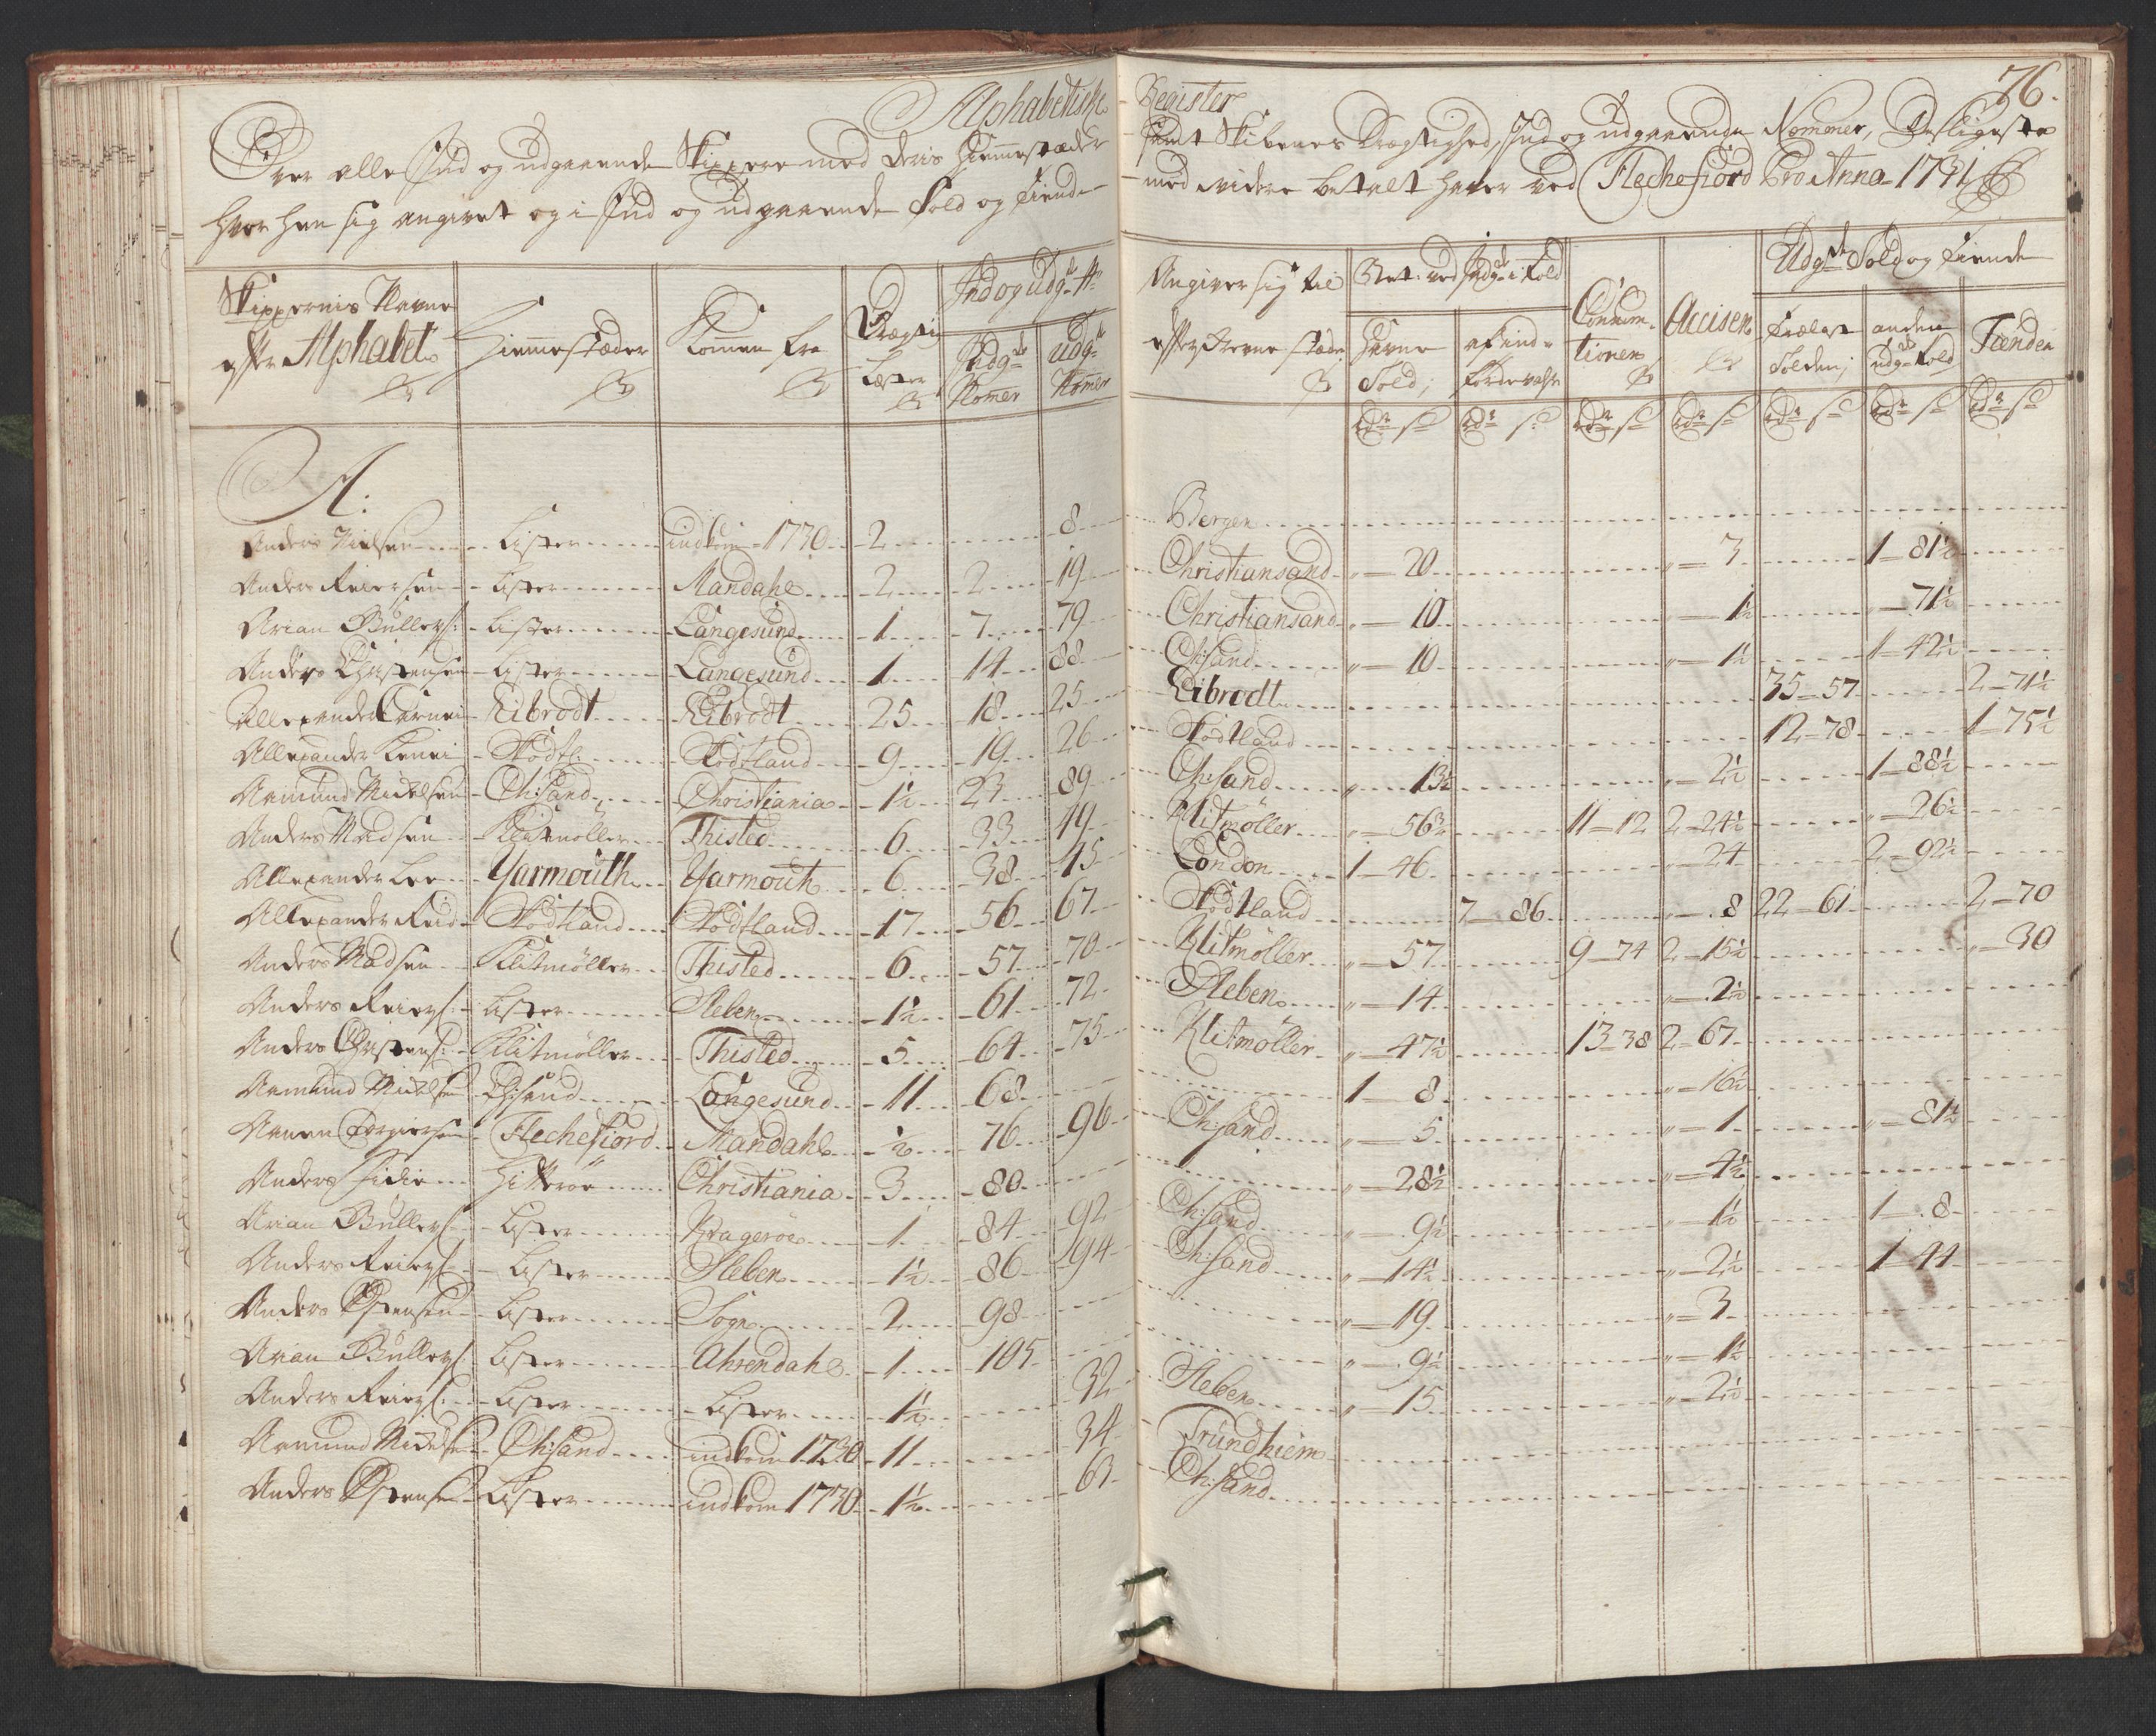 Alphabetiske Register 76.
Over alle Ind og udgaaende Skippere med deris Hiemmestæder samt Skibenes Drægtighed, Ind og udgaaende Nommer, Desligeste
hvor hen sig angivet og i Ind og udgaaende Told og Tiende med videre betalt haver ved Flechefiord Pro Anno 1731
Skippernis Navne efter Alphabet | Hiemmestæder | Kommen fra | Drægtig Læster | Ind og Udg: N: | Indg: Nomer | Udg: Nomer | Angiver sig til efterskrevne stæder | Bet: ved Indg: Told | Havne Told; | af ind- førde vahre | Consum- tionen | Accisen | Udg: Told og Tiende | Trælast Tolden; | anden udg: Told | Tienden
Rdr s | Rdr s | Rdr s | Rdr s | Rdr s | Rdr s | Rdr s
A:
Anders Nielsen Lister indkom 1730 2 8 Bergen
Anders Reiersen Lister Mandahl 2 2 19 Christiansand „ 20 „ 3 1 81½
Arian Bullers: Lister Langesund 1 7 79 Christiansand „ 10 „ 1½ „ 71½
Anders Christensen Lister Langesund 1 14 88 Ch:sand „ 10 „ 1½ 1 42½
Allexander Eibrodt Eibrodt 25 18 25 Eibrodt 35 57 2 71½
Allexander Hodtl: Hodtland 9 19 26 Hodtland 12 78 1 75½
Aamund Nielsen Ch:sand Christiania 1½ 23 89 Ch:sand „ 13½ „ 2½ 1 88½
Anders Madsen Klitmøller Thisted 6 33 49 Klitmøller „ 56¾ 11 12 2 24½ „ 26½
Allexander Lee Yarmouth Yarmouth 6 38 45 London 1 46 „ 24 2 92½
Allexander Reid Hodtland Hodtland 17 56 67 Hodtland 7 86 „ 8 22 61 2 70
Anders Madsen Klitmøller Thisted 6 57 70 Klitmøller „ 57 9 74 2 15½ „ 30
Anders Reiers: Lister Aleben 1½ 61 72 Aleben „ 14 „ 2½
Anders Christens: Klitmøller Thisted 5 64 75 Klitmøller „ 47½ 13 38 2 67
Aamund Nielsen Ch:sand Langesund 11 68 1 8 „ 16½
Flechefiord Mandahl ½ 76 96 Ch:sand „ 5 „ 1 „ 81½
Anders Hitterøe Christiania 3 80 „ 28½ „ 4½
Arian Bullers: Lister Kragerøe 1 84 92 Ch:sand „ 9½ „ 1½ 1 8
Anders Reiers: Lister Aleben 1½ 86 94 Ch:sand „ 14½ „ 2½ 1 44
Anders Ostensen Lister Sogn 2 98 „ 19 „ 3
Arian Bullers: Lister Ahrendahl 1 105 „ 9½ „ 1½
Anders Reiers: Lister Lister 1½ 32 Aleben „ 15 „ 2½
Aamund Nielsen Ch:sand indkom 1730 11 34 Trundhiem
Anders Ostensen Lister indkom 1730 1½ 63 Ch:sand